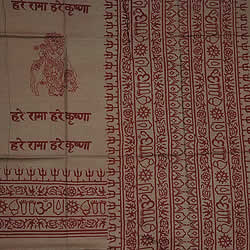 हरे रामा हरे कृष्णा
हरे रामा हरे कृष्णा
हरे रामा हरे कृष्णा